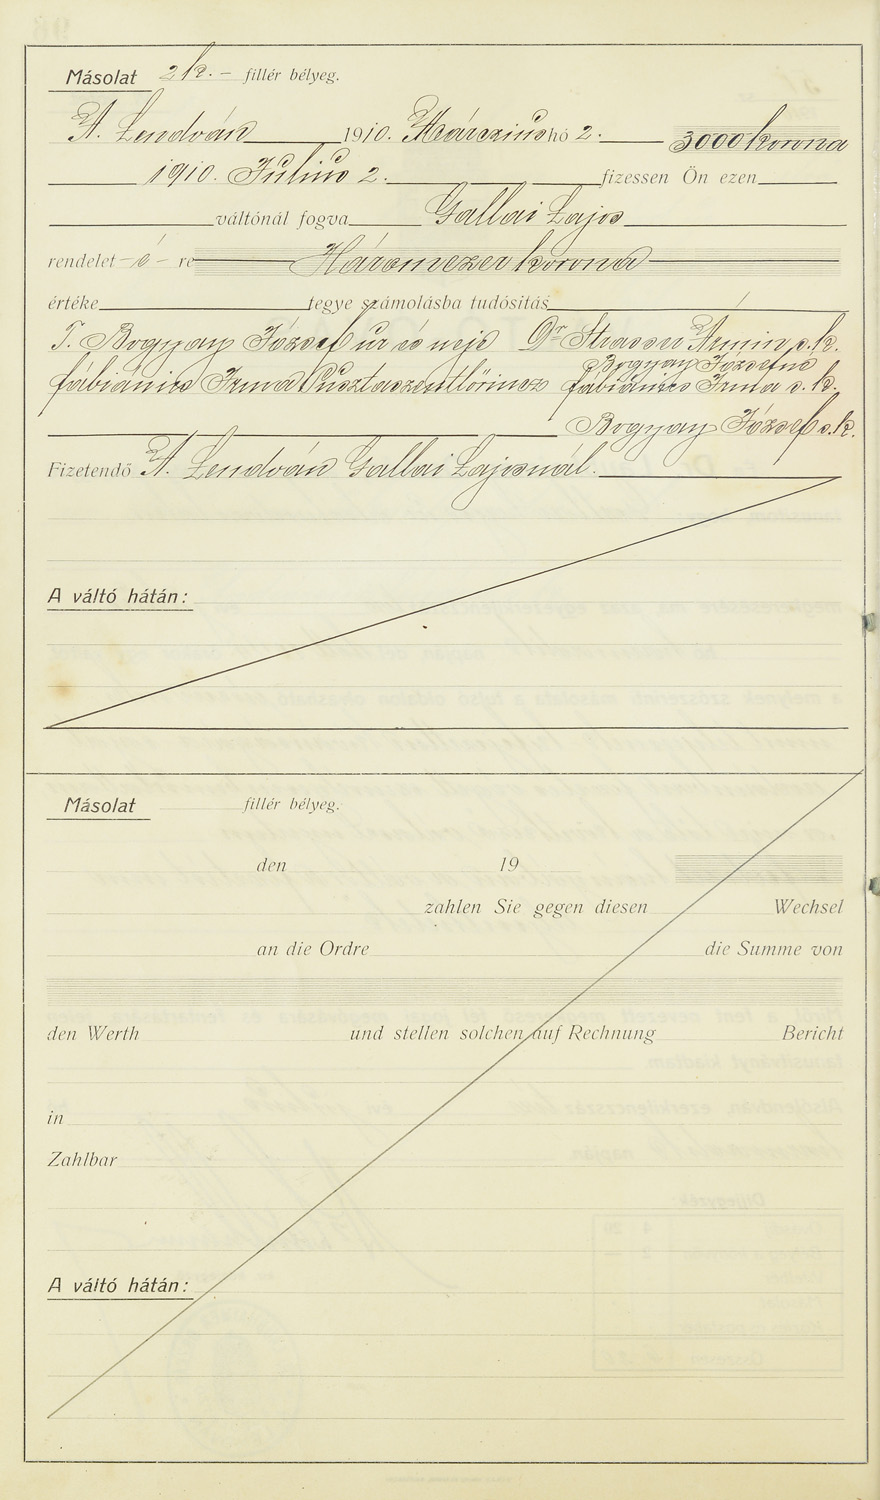 Másolat 2 k. – fillér bélyeg.
A. Lendván 1910. Márczius hó 2. 3000 korona
1910. Julius 2. fizessen Ön ezen
váltónál fogva Gallai Lajos
rendelet – é – re Háromezer korona
értéke tegye számolásba tudósítás
T. Bogyay József ur és neje Dr Strasser Ármin s. k.
Bogyay Józsefné
fábiánics Irma Pusztaszentlőrincz fábiánics Irma s. k.
Bogyay József s. k.
Fizetendő A. Lendván Gallai Lajosnál.
A váltó hátán:
Másolat fillér bélyeg.
den 19
zahlen Sie gegen diesen Wechsel
an die Ordre die Summe von
den Werth und stellen solchen auf Rechnung Bericht
in
Zahlbar
A váltó hátán: